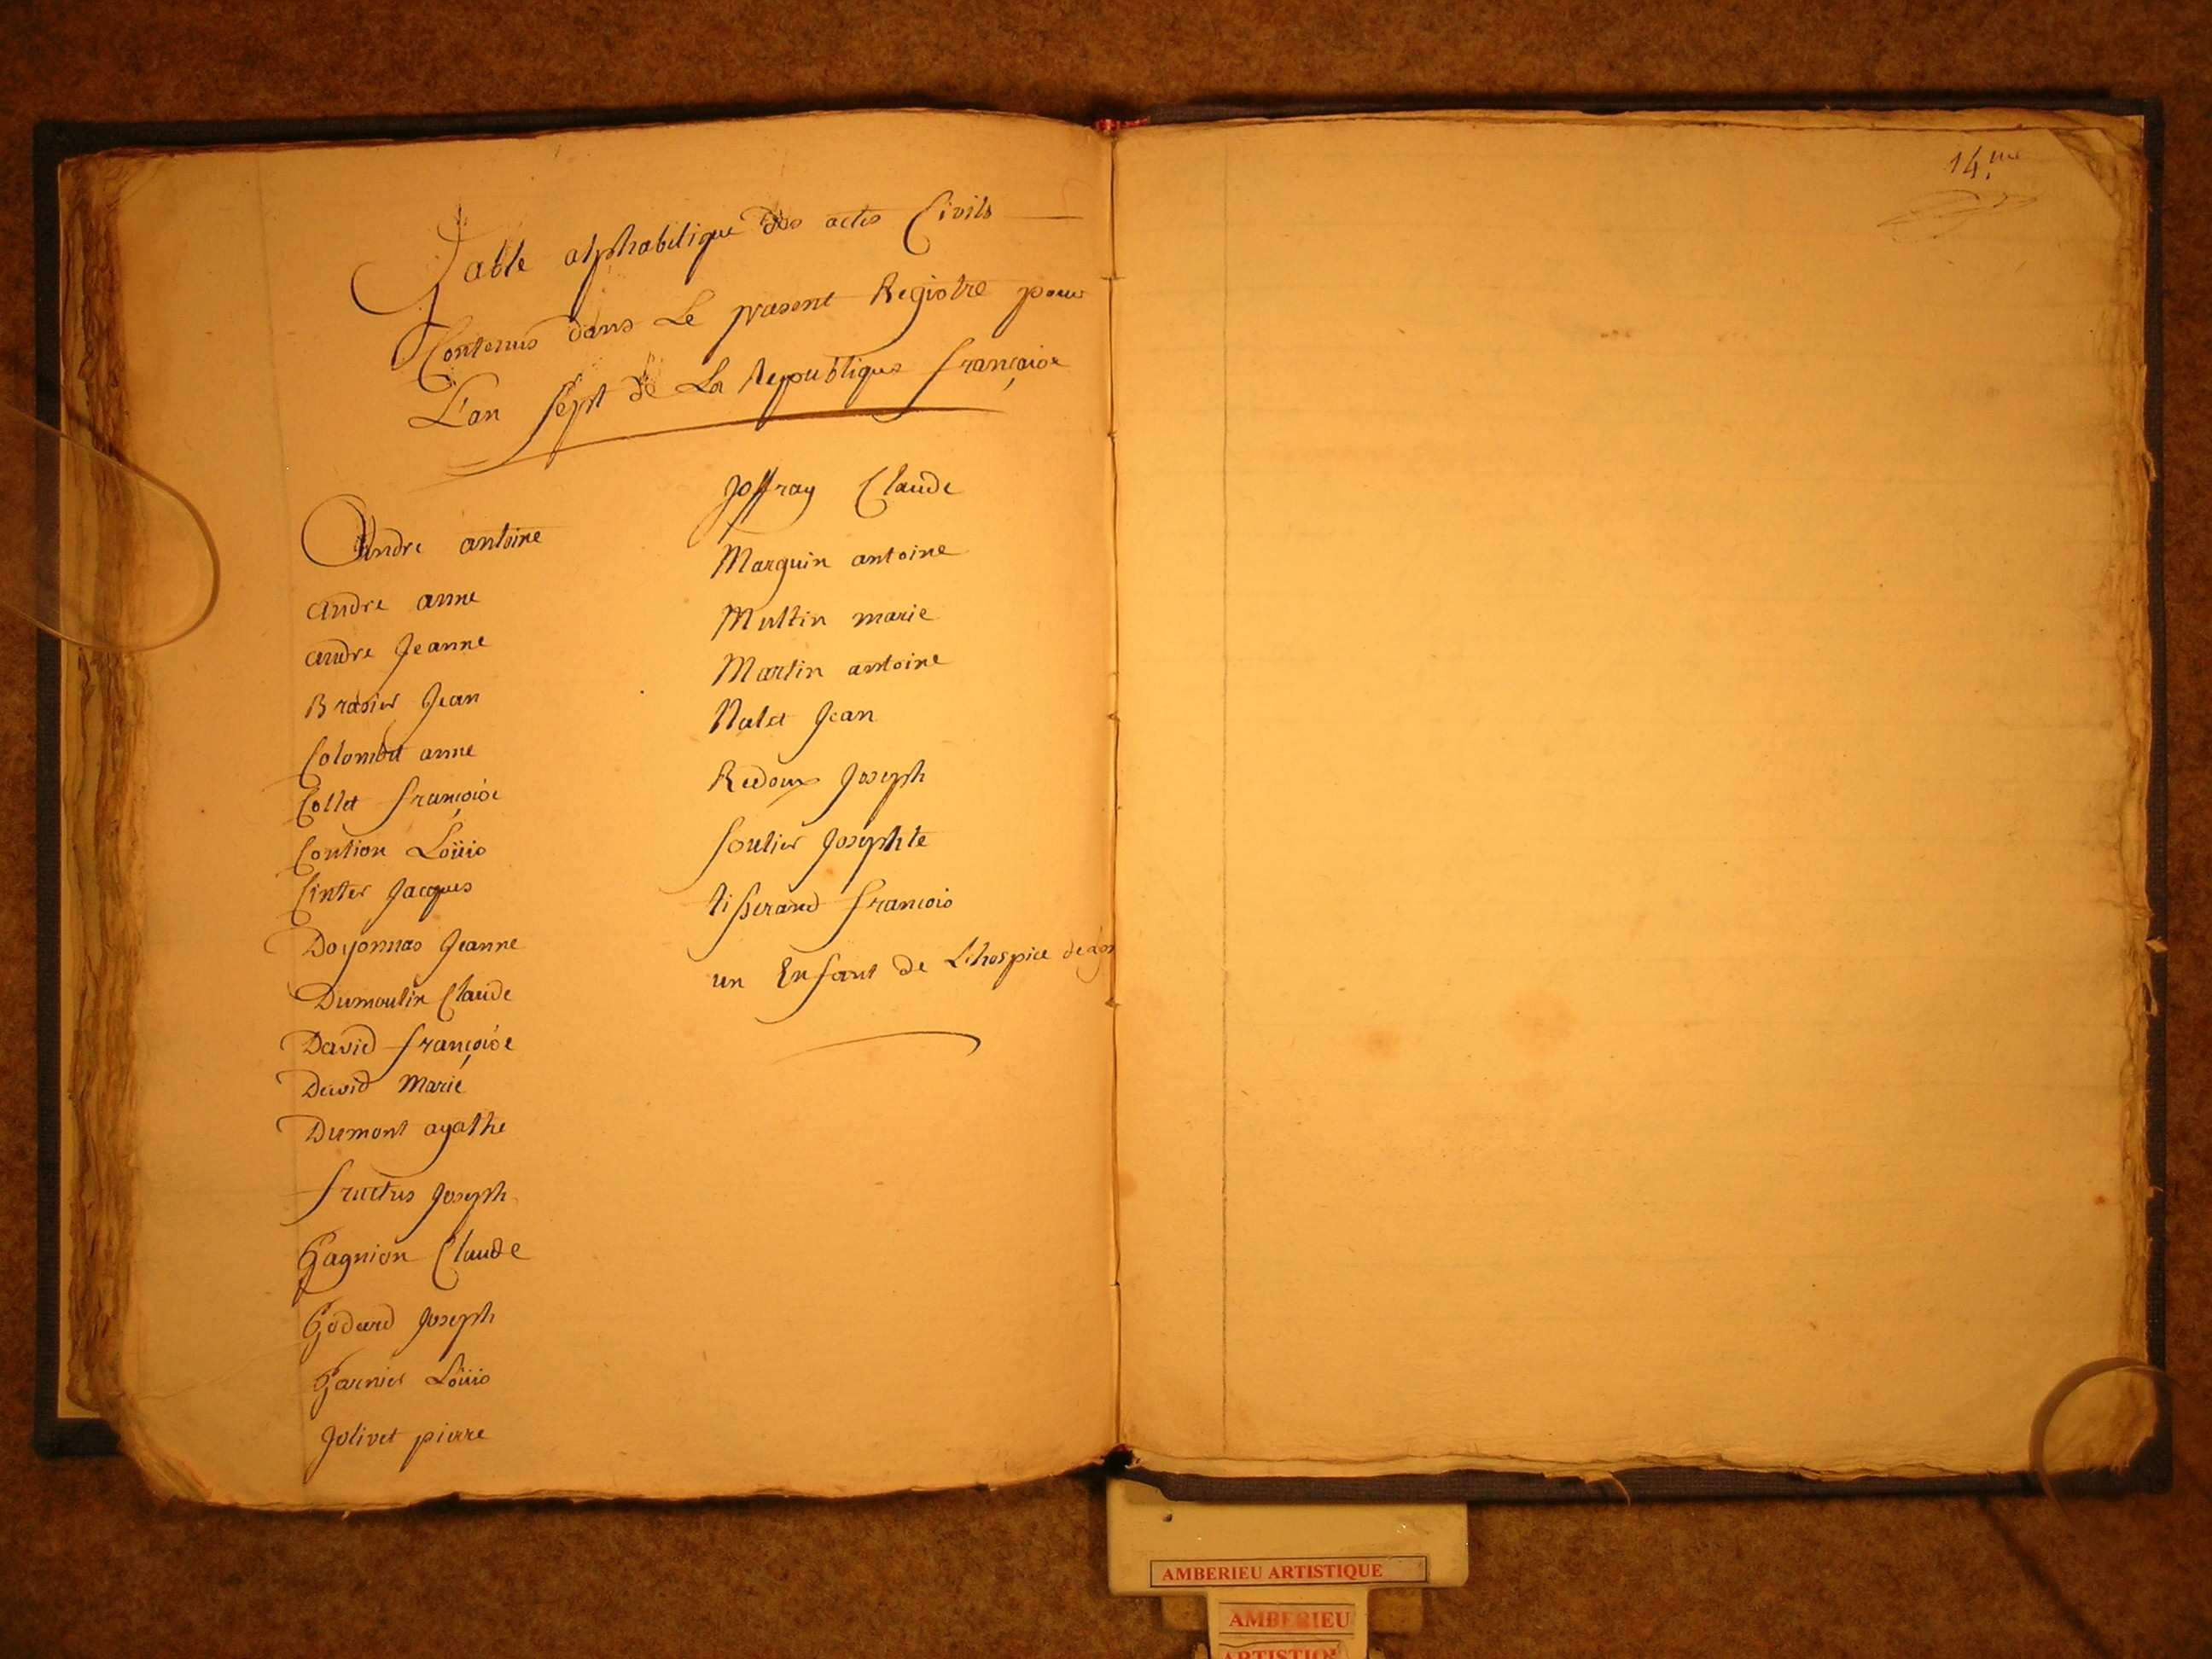 Table alphabetique des actes Civils
Contenus dans Le present Registre pour
L'an sept de La Republique françaice
Andre antoine
andre anne
andre Jeanne
Brasier Jean
Colombet anne
Collet françoise
Contion Loüis
Cinter Jacques
Doyonnas Jeanne
Dumoulin Claude
David françoise
David Marie
Dumont agathe
fructus Joseph
Gagnion Claude
Godard Joseph
Garnier Loüis
Jolivet pierre
Joffray Claude
Marguin antoine
Multin marie
Martin antoine
Nalet Jean
Redoux Joseph
Soulier Josephte
tisserand francois
un Enfant de Lhospice
14.me
AMBERIEU ARTISTIQUE
AMBERIEU